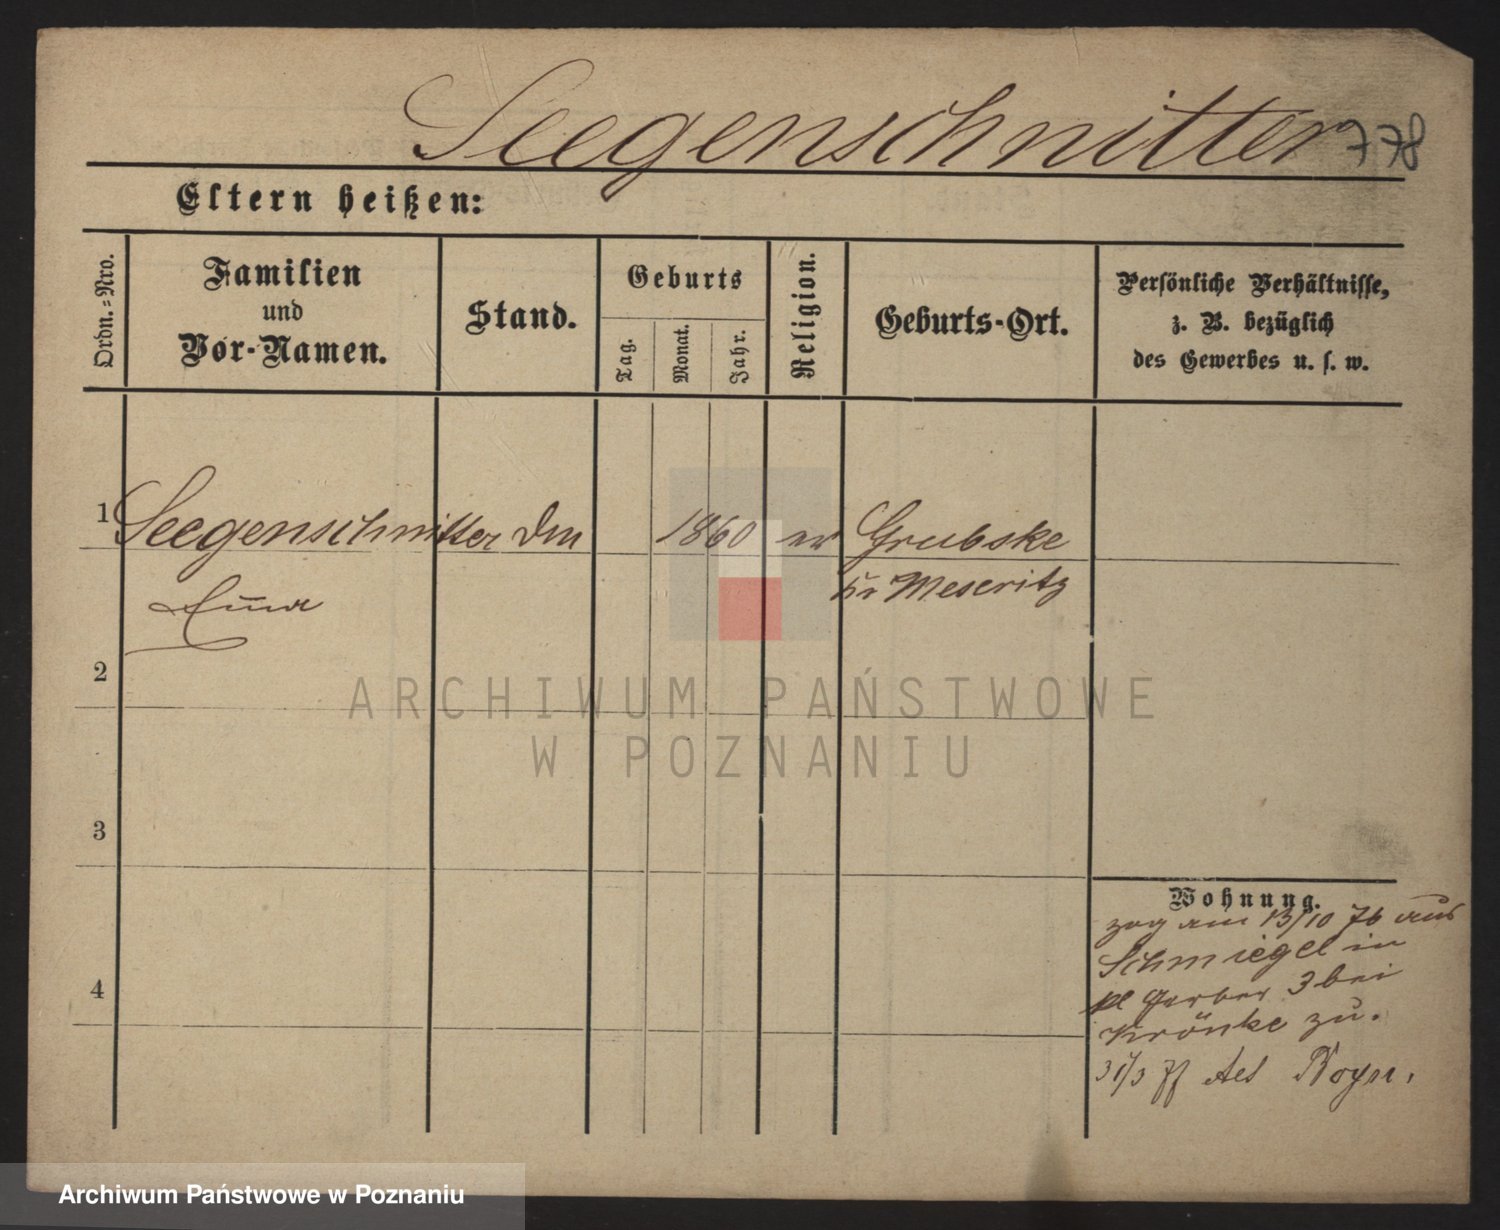 Seegenschnitter 778
Eltern heißen:
Ordn.=Nro.
Familien
und
Vor-Namen.
Stand.
Geburts
Tag.
Monat.
Jahr.
Religion.
Geburts-Ort.
Persönliche Verhältnisse,
z. B. bezüglich
des Gewerbes u. s. w.
1 Seegenschnitter Dm 1860 ev Grubske
Kr Meseritz
Em̅a
2
3
4
Wohnung.
zog am 13/10 76 aus
Schmiegel in
kl Gerber 3 bei
Krönke zu.
31/3 77
ARCHIWUM PAŃSTWOWE
W POZNANIU
Archiwum Państwowe w Poznaniu